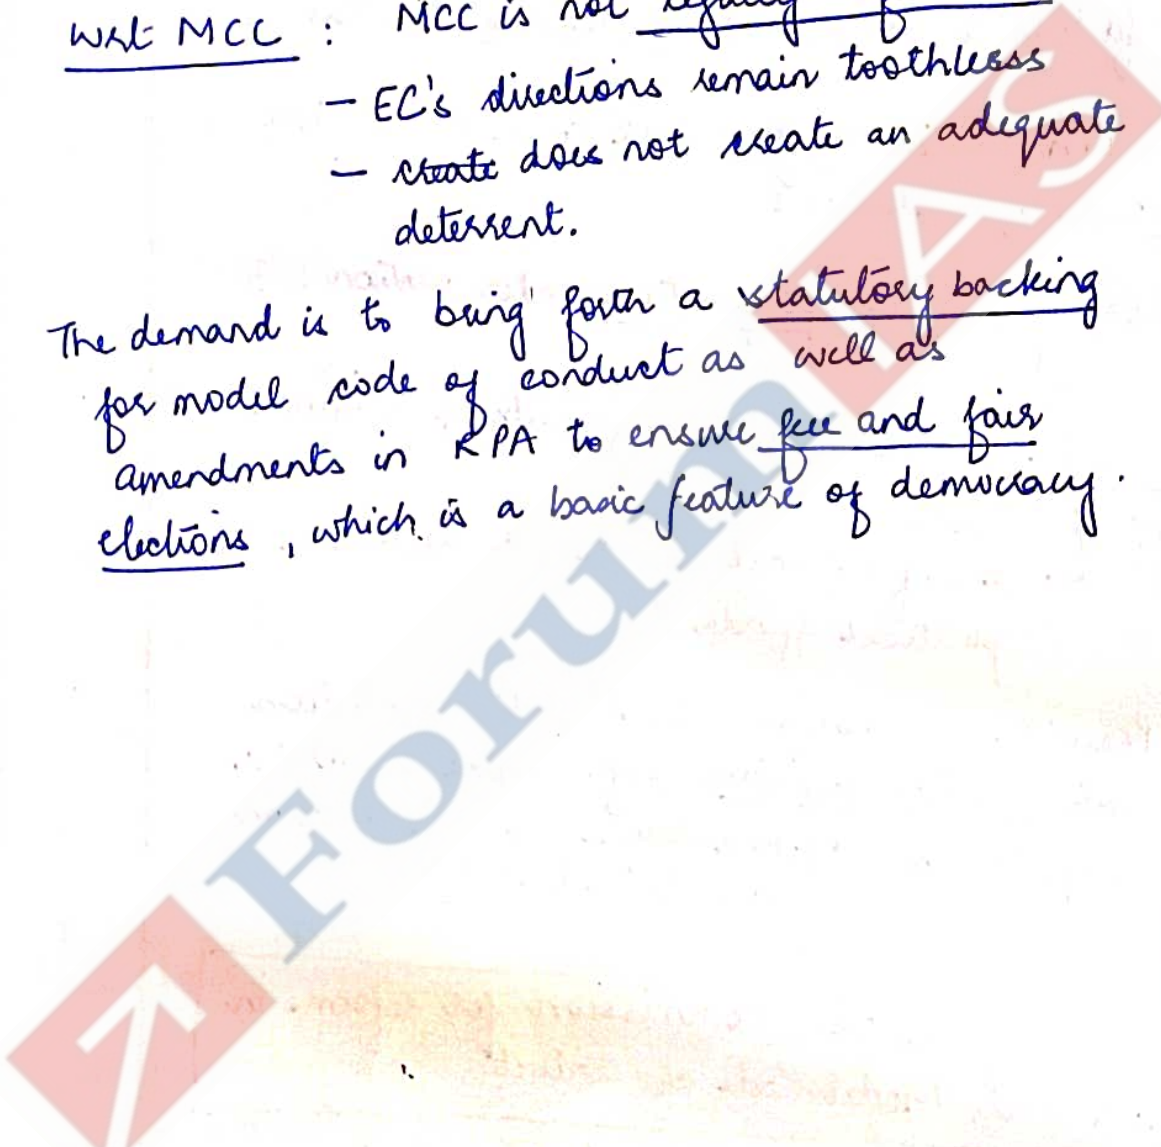 wrt MCC : MCC is not legally
– EC's directions remain toothless
– create does not create an adequate
deterrent.
The demand is to bring forth a statutory backing
for model code of conduct as well as
amendments in RPA to ensure free and fair
elections, which is a basic feature of democracy.
Forum IAS